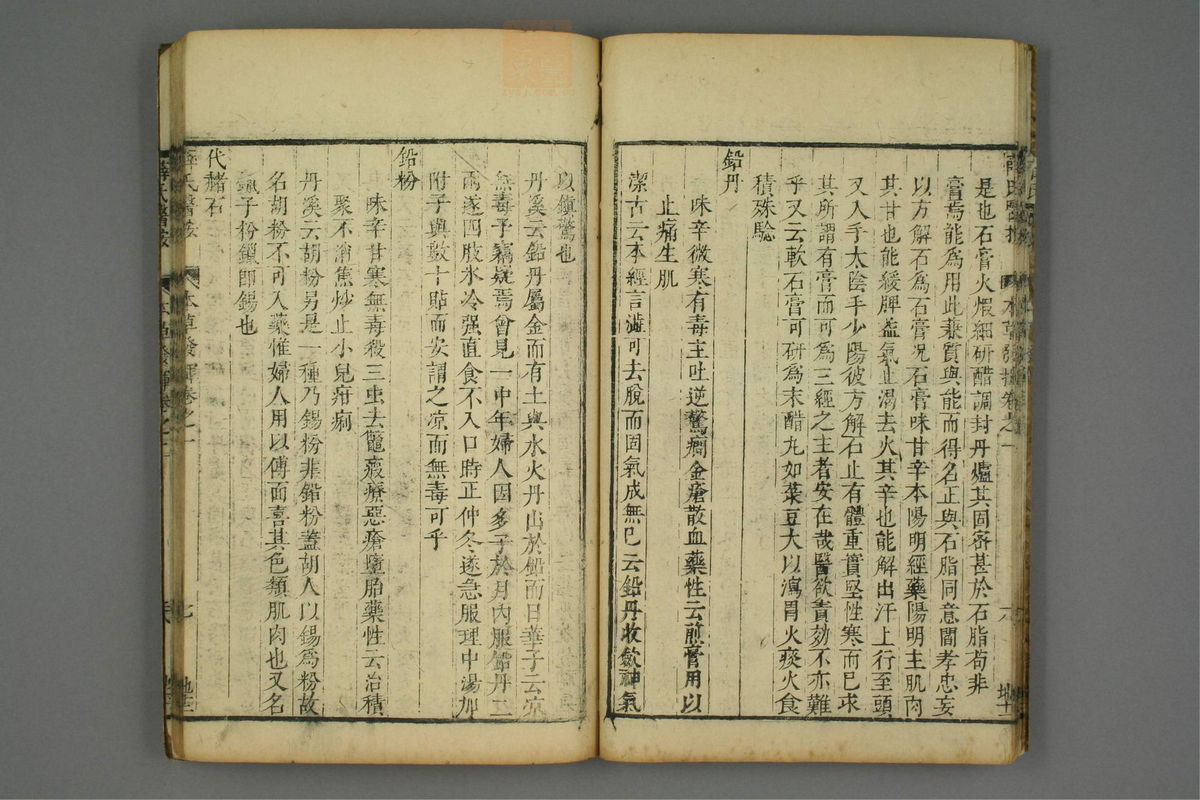 是也石膏火煆細研醋調封丹爐其固密甚於石脂苟非
膏焉能爲用此兼質與能而得名正與石脂同意閻孝忠妄
以方解石爲石膏况石膏味甘辛本陽明經藥陽明主肌肉
其甘也能緩脾益氣止渴去火其辛也能解出汗上行至頭
又入手太陰手少陽彼方解石止有體重質堅性寒而已求
其所謂有膏而可爲三經之主者安在哉醫欲責効不亦難
乎又云軟石膏可研爲末醋丸如菉豆大以瀉胃火痰火食
積殊騐
鉛丹
味辛微寒有毒主吐逆驚癇金瘡散血藥性云煎膏用以
止痛生肌
潔古云本經言澁可去脫而固氣成無已云鉛丹收歛神氣
以鎮驚也
丹溪云鉛丹屬金而有土與水火丹出於鉛而日華子云凉
無毒予竊疑焉曾見一中年婦人因多子於月內服鉛丹二
兩遂四肢氷冷强直食不入口時正仲冬遂急服理中湯加
附子與數十貼而安謂之凉而無毒可乎
鉛粉
味辛甘寒無毒殺三蟲去鼈瘕療惡瘡墮胎藥性云治積
聚不消焦炒止小兒疳痢
丹溪云胡粉另是一種乃錫粉非鉛粉蓋胡人以錫爲粉故
名胡粉不可入藥惟婦人用以傅面喜其色類肌肉也又名
子粉鎻即錫也
代赭石
薛氏醫按 本草發揮卷之一 七